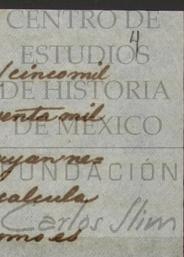 CENTRO DE
4
ESTUDIOS
cinco mil
DE HISTORIA
enta mil
DE MÉXICO
FUNDACIÓN
calcula
Carlos Slim